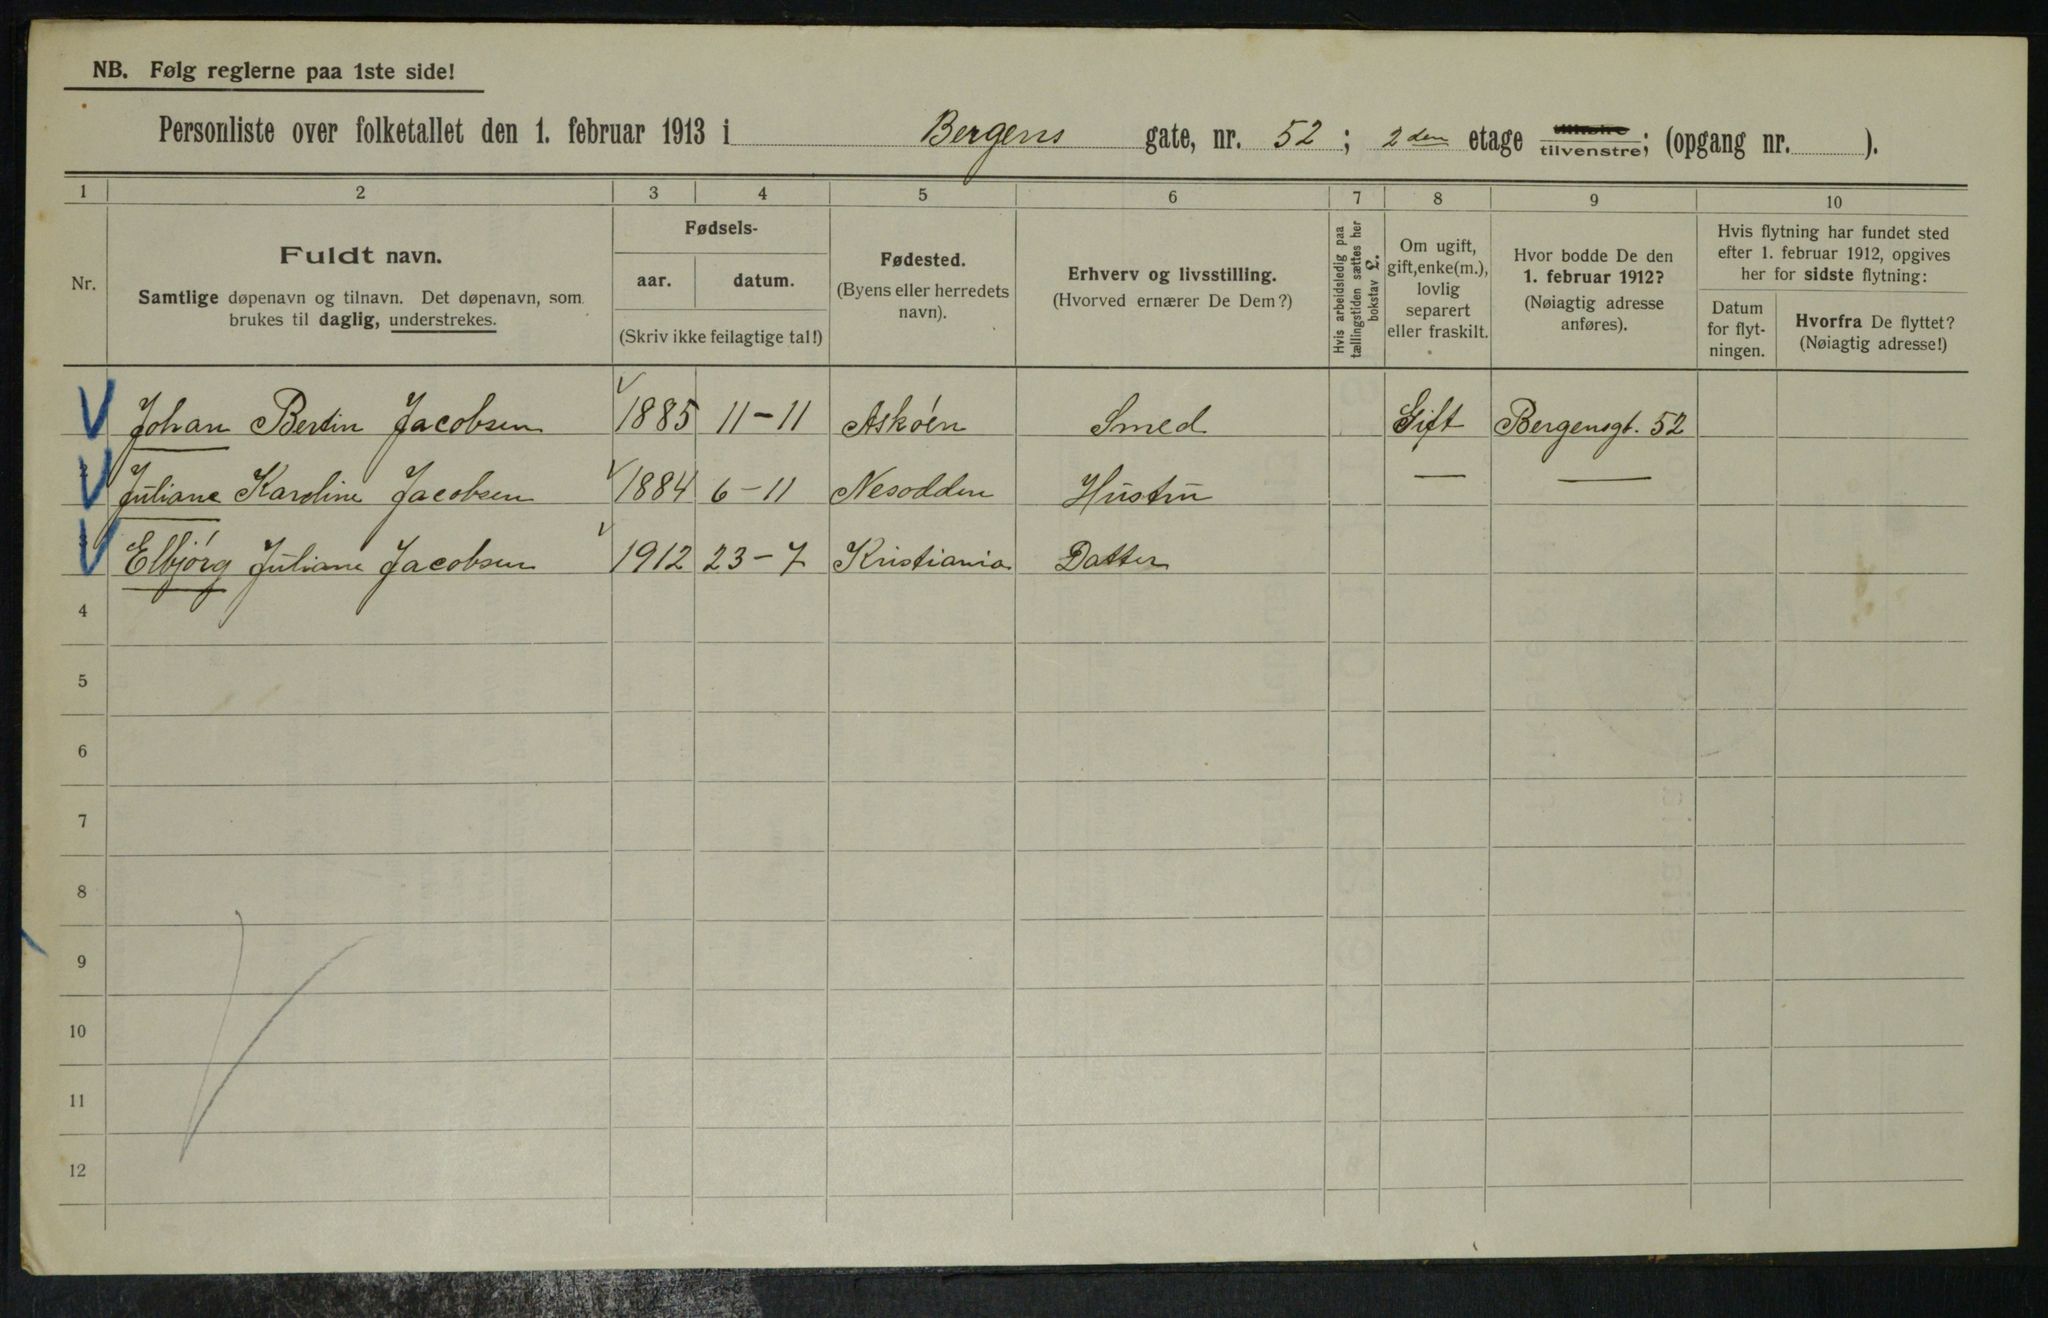 NB. Følg reglerne paa 1ste side!
Personliste over folketallet den 1. februar 1913 i Bergens gate, nr. 52; 2den etage tilhøire tilvenstre; (opgang nr. ).
1 2 3 4 5 6 7 8 9 10
Nr.
Fuldt navn.
Samtlige døpenavn og tilnavn. Det døpenavn, som
brukes til daglig, understrekes.
Fødsels-
aar. datum.
(Skriv ikke feilagtige tal!)
Fødested.
(Byens eller herredets
navn).
Erhverv og livsstilling.
(Hvorved ernærer De Dem?)
Hvis arbeidsledig paa
tællingstiden sættes her
bokstav L.
Om ugift,
gift, enke(m.),
lovlig
separert
eller fraskilt.
Hvor bodde De den
1. februar 1912?
(Nøiagtig adresse
anføres).
Hvis flytning har fundet sted
efter 1. februar 1912, opgives
her for sidste flytning:
Datum
for flyt-
ningen.
Hvorfra De flyttet?
(Nøiagtig adresse!)
Johan Bertin Jacobsen 1885 11-11 Askøen Smed Gift Bergensgt. 52
Juliane Karoline Jacobsen 1884 6-11 Nesodden Hustru — —
Elbjørg Juliane Jacobsen 1912 23-7 Kristiania Datter
4
5
6
7
8
9
10
11
12